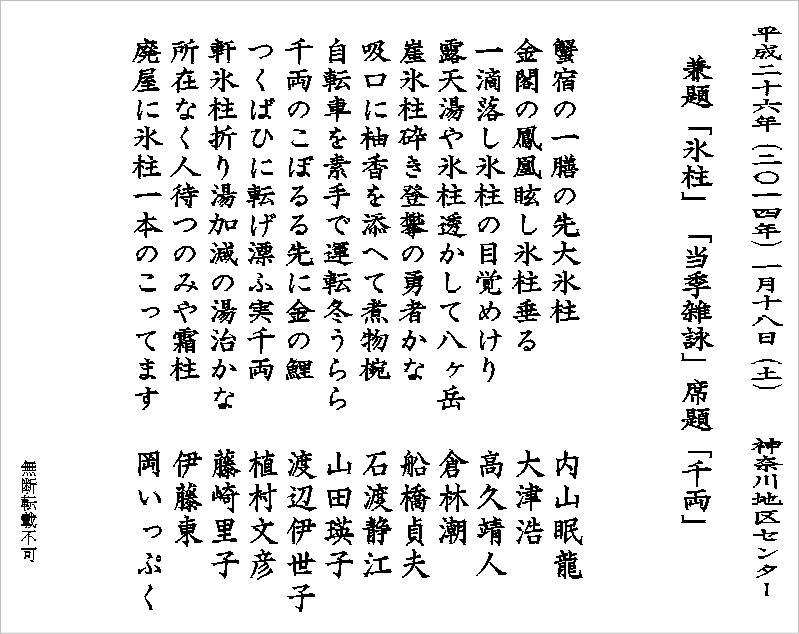 平成二十六年（二〇一四年）一月十八日（土）　神奈川地区センター
兼題「氷柱」　「当季雑詠」席題「千両」
蟹宿の一膳の先大氷柱　内山眠龍
金閣の鳳凰眩し氷柱垂る　大津浩
一滴落し氷柱の目覚めけり　高久靖人
露天湯や氷柱透かして八ヶ岳　倉林潮
崖氷柱砕き登攀の勇者かな　船橋貞夫
吸口に柚香を添へて煮物椀　石渡静江
自転車を素手で運転冬うらら　山田瑛子
千両のこぼるる先に金の鯉　渡辺伊世子
つくばひに転げ漂ふ実千両　植村文彦
軒氷柱折り湯加減の湯治かな　藤崎里子
所在なく人待つのみや霜柱　伊藤東
廃屋に氷柱一本のこってます　岡いっぷく
無断転載不可